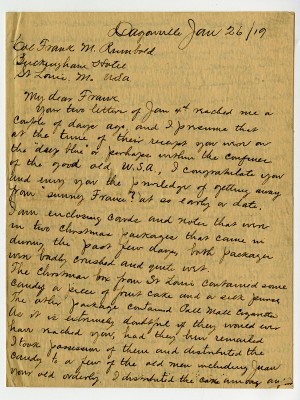 Dagonville Jan 26/19
Col Frank M. Rumbold
Buckingham Hotel
St Louis Mo USA
My dear Frank
Your two letter of Jan 4th reached me a
couple of days ago, and I presume that
at the time of their receipt you were on
the "deep blue" or perhaps within the confines
of the good old U.S.A. I congratulate you
and envy you the privilege of getting away
from sunny France? at so early a date.
I am enclosing cards and notes that were
in two Christmas packages that came in
during the past few days, both packages
were badly crushed and quite wet.
The Christmas box from St Louis contained some
candy a piece of fruit cake and a silk
The other package contained Pall Mall Cigarettes
As it is extremely doubtful if they would ever
have reached you, had they been remailed
I took possession of them and distributed the
candy to a few of the old men including
your old orderly. I distributed the cake among my